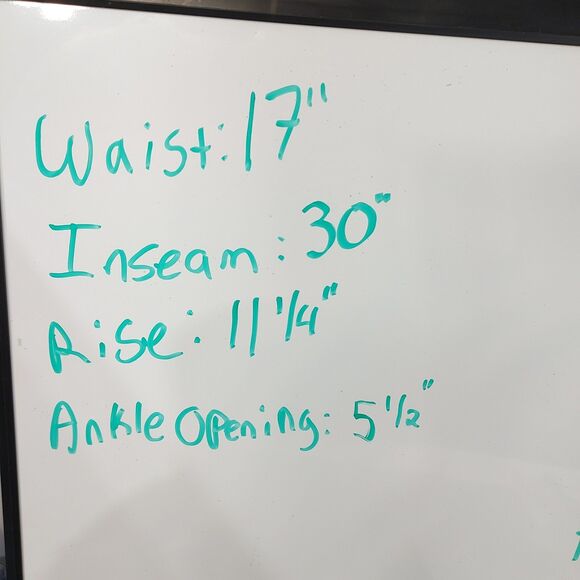 Waist: 17"
Inseam: 30"
Rise: 11 1/4"
Ankle Opening: 5 1/2"